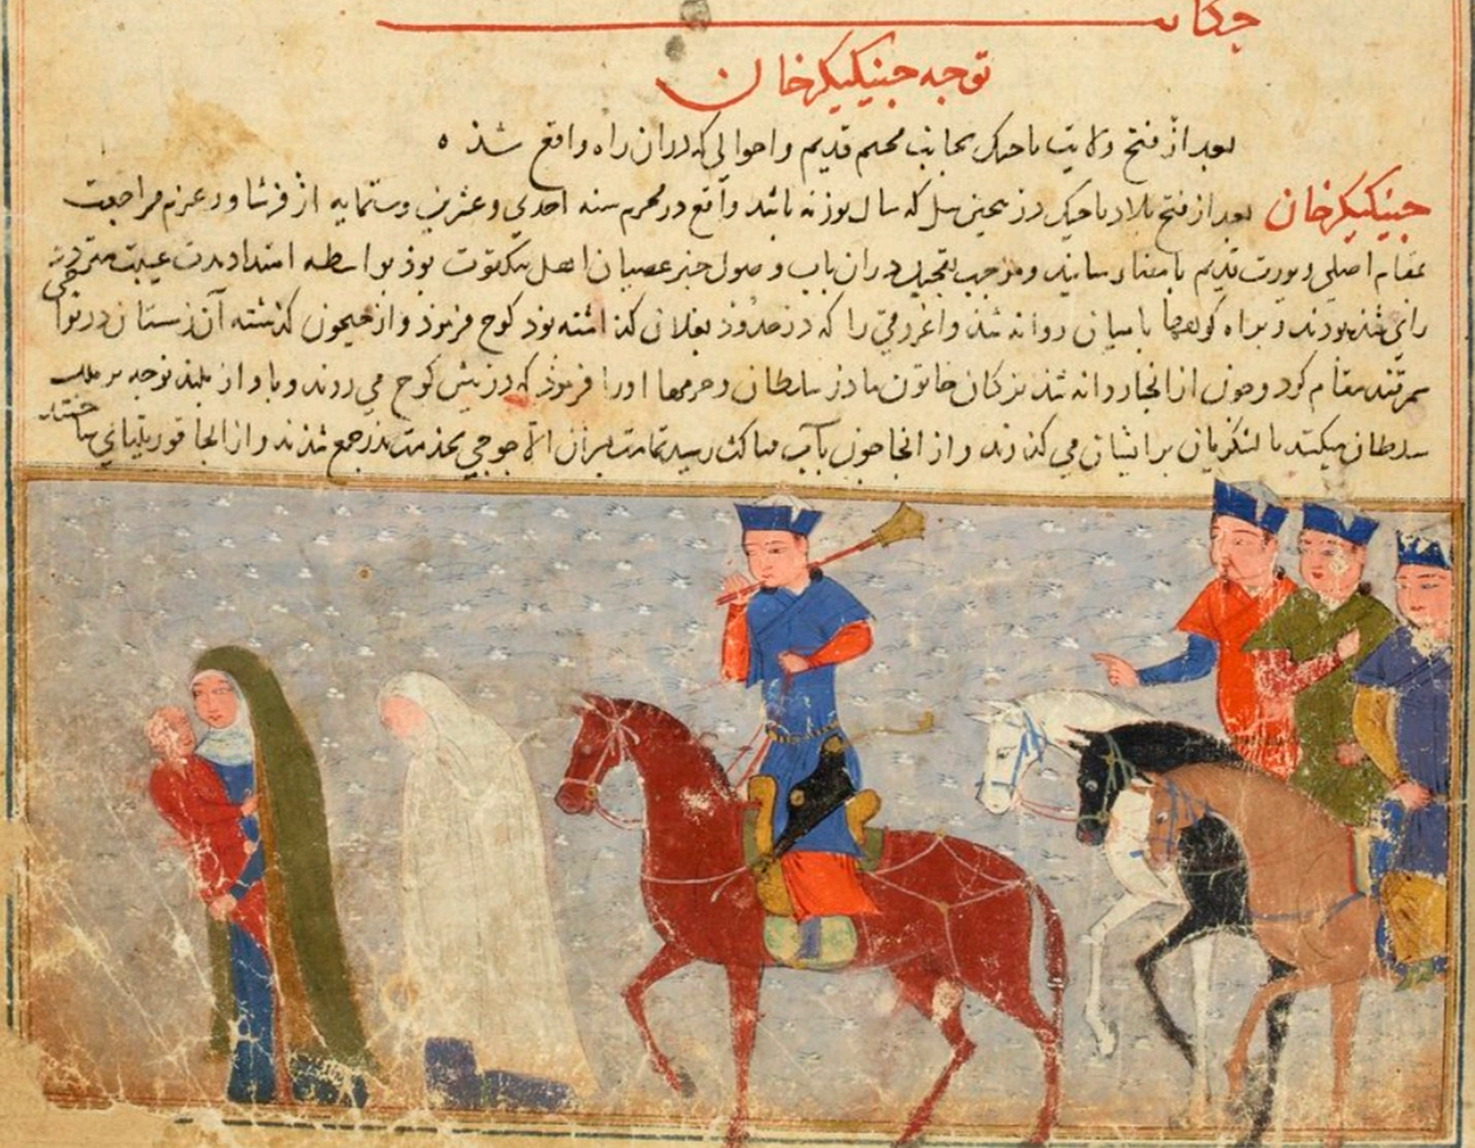 توجه جینکیکزخان
بعد از فتح ولایت تاجیک بجانب مخیم قدیم و احوالی که در ان راه واقع شذه
جینکیکزخان بعد از فتح بلاد تاجیک در سال بوزنه باشد واقع در محرم سنه احدی و عشرین و ستمایه از فرشاور عزم مراجعت
مقام اصلی و یورت قدیم بامضا رسانید و موجب تعجیل در ان باب وصول خبر عصیان اهل تنکقوت بوذ بواسطه امتداد مدت غیبت متردد
رای شذه بودند و براه کوهها بامیان روانه شذ و اغروقی را که در حدود بغلان کذاشته بوذ کوج فرموذ و از جیحون کذشته آن زمستان در نواحی
سمرقند مقام کرد و چون از انجا روانه شذ ترکان خاتون مادر سلطان و حرمها او را فرموذ که در پیش کوج می روند و باواز بلند نوحه بر ملک
سلطان میکنند تا لشکریان بر ایشان می کذرند و از انجا چون بآب فناکت رسید تمامت پسران الا جوجی بخدمت پدر جمع شذند و از انجا قوریلتای ساختند